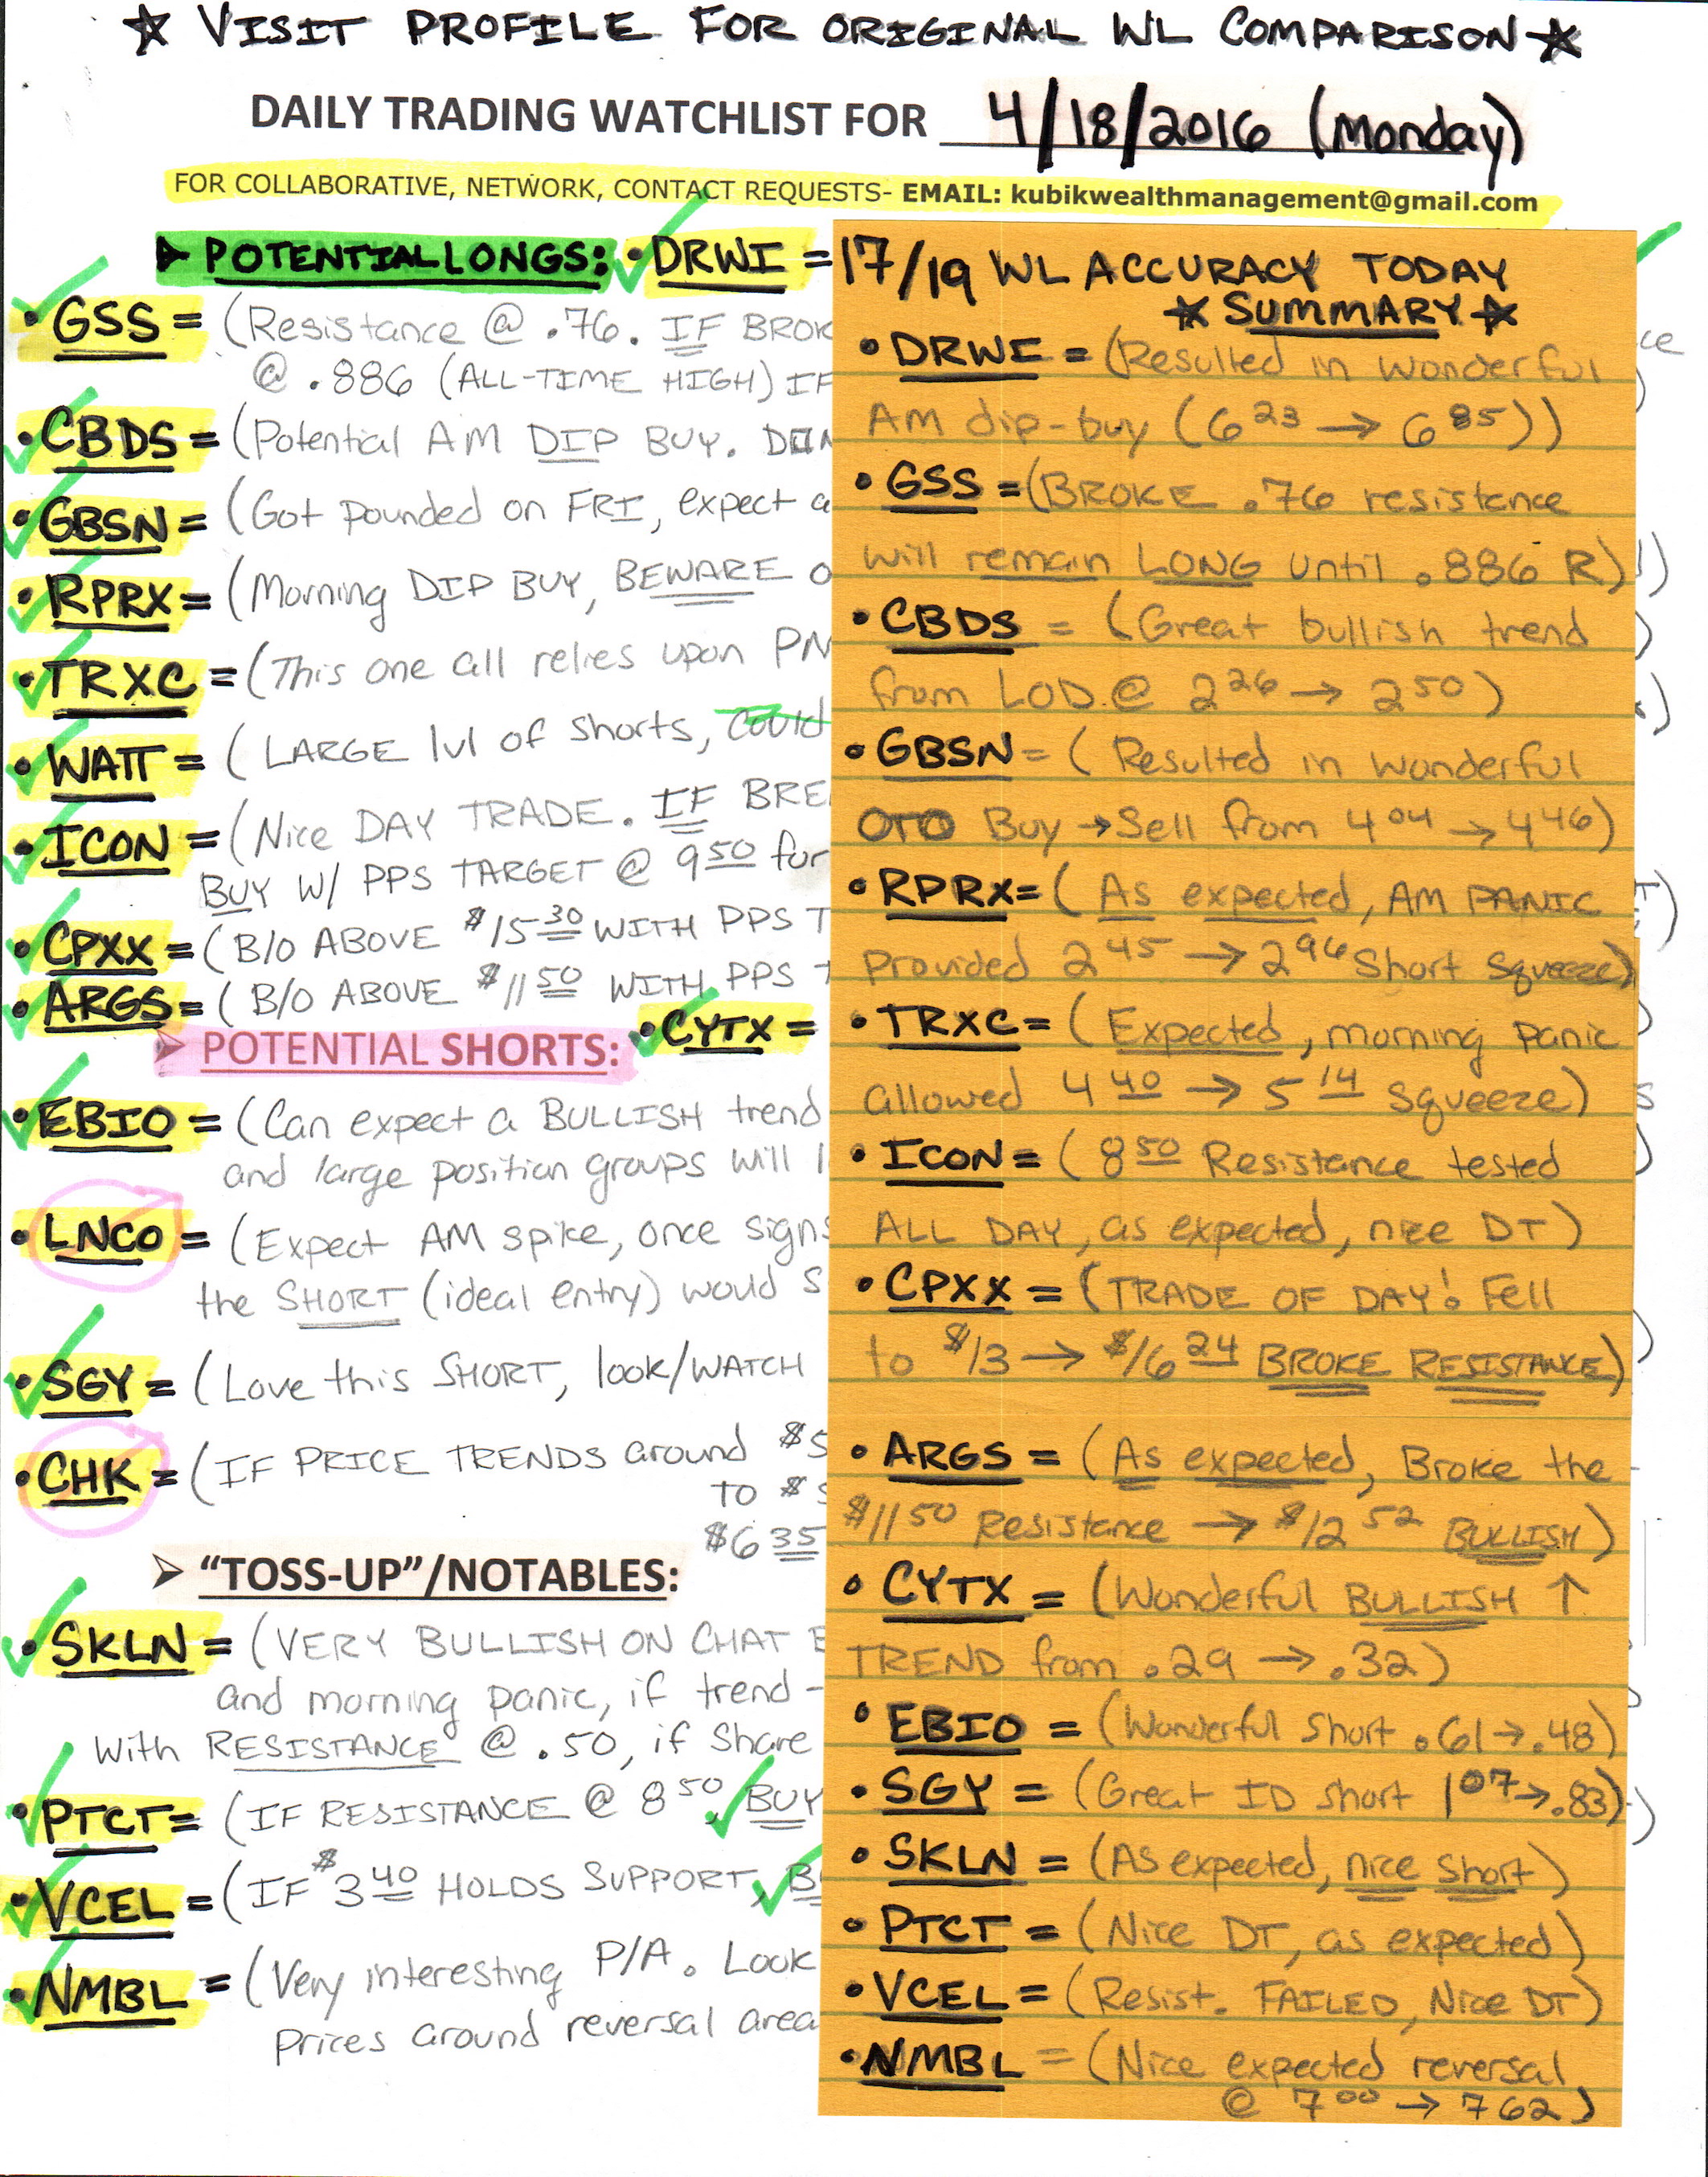 ☆ VISIT PROFILE FOR ORIGINAL WL COMPARISON ☆
DAILY TRADING WATCHLIST FOR 4/18/2016 (Monday)
FOR COLLABORATIVE, NETWORK, CONTACT REQUESTS- EMAIL: kubikwealthmanagement@gmail.com
➤ POTENTIAL LONGS: • DRWI =
• GSS = (Resistance @ .76. IF BROK
@ .886 (ALL-TIME HIGH) IF
• CBDS = (Potential AM DIP BUY.
• GBSN = (Got pounded on FRI, expect a
• RPRX = (Morning DIP BUY, BEWARE O
• TRXC = (This one all relies upon PM
• WATT = (LARGE lvl of shorts, could
• ICON = (Nice DAY TRADE. IF BREA
BUY W/ PPS TARGET @ 9 50 for
• CPXX = (B/O ABOVE $15 30 WITH PPS T
• ARGS = (B/O ABOVE $11 50 WITH PPS T
➤ POTENTIAL SHORTS: • CYTX =
• EBIO = (Can expect a BULLISH trend
and large position groups will l
• LNCO = (Expect AM spike, once signs
the SHORT (ideal entry) would s
• SGY = (Love this SHORT, look/WATCH
• CHK = (IF PRICE TRENDS around $5
TO $5
$6 35
➤ "TOSS-UP"/NOTABLES:
• SKLN = (VERY BULLISH ON CHAT B
and morning panic, if trend -
with RESISTANCE @ .50, if share
• PTCT = (IF RESISTANCE @ 8 50, BUY
• VCEL = (IF $3 40 HOLDS SUPPORT, B
• NMBL = (Very interesting P/A. Look
Prices around reversal area
17/19 WL ACCURACY TODAY
☆ SUMMARY ☆
• DRWI = (Resulted in wonderful
AM dip-buy (6 23 → 6 85))
• GSS = (BROKE .76 resistance
will remain LONG until .886 R)
• CBDS = (Great bullish trend
from LOD @ 2 26 → 2 50)
• GBSN = (Resulted in wonderful
OTO Buy → Sell from 4 04 → 4 46)
• RPRX = (As expected, AM PANIC
Provided 2 45 → 2 96 short squeeze)
• TRXC = (Expected, morning panic
allowed 4 40 → 5 14 squeeze)
• ICON = (8 50 Resistance tested
ALL DAY, as expected, nice DT)
• CPXX = (TRADE OF DAY! Fell
to $13 → $16 24 BROKE RESISTANCE)
• ARGS = (As expected, Broke the
$11 50 Resistance → $12 52 BULLISH)
• CYTX = (Wonderful BULLISH ↑
TREND from .29 → .32)
• EBIO = (Wonderful Short .61 → .48)
• SGY = (Great ID short 1 07 → .83)
• SKLN = (As expected, nice short)
• PTCT = (Nice DT, as expected)
• VCEL = (Resist. FAILED, Nice DT)
• NMBL = (Nice expected reversal
@ 7 00 → 7 62)